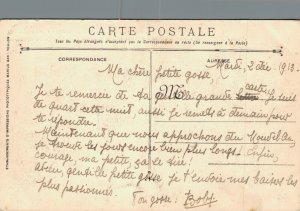 CARTE POSTALE
Tous les Pays étrangers n'acceptent pas la Correspondance au recto (Se renseigner à la Poste)
CORRESPONDANCE
ADRESSE
Mardi 2 Déc 1913
Ma chère petite gosse,
Je te remercie de ta grande carte, je suis
de quart cette nuit aussi je remets à demain pour
te répondre.
Maintenant que nous approchons du
je trouve les jours encore bien plus longs. Enfin,
courage ma petite, ça se tire!
gentille petite gosse je t'envoie mes baisers les
plus passionnés.
Ton gosse: Boby